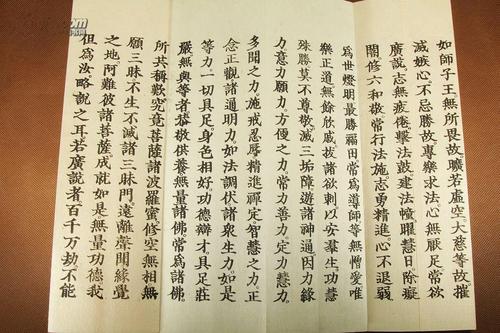 如師子王無所畏故曠若虛空大慈等故摧
滅嫉心不忌勝故專樂求法心無厭足常欲
廣說志無疲倦擊法鼓建法幢曜慧日除癡
闇修六和敬常行法施志勇精進心不退弱
爲世燈明最勝福田常爲導師等無憎愛唯
樂正道無餘欣戚拔諸欲刺以安羣生功慧
殊勝莫不尊敬滅三垢障遊諸神通因力緣
力意力願力方便之力常力善力定力慧力
多聞之力施戒忍辱精進禪定智慧之力正
念正觀諸通明力如法調伏諸衆生力如是
等力一切具足身色相好功德辯才具足莊
嚴無與等者恭敬供養無量諸佛常爲諸佛
所共稱歎究竟菩薩諸波羅蜜修空無相無
願三昧不生不滅諸三昧門遠離聲聞緣覺
之地阿難彼諸菩薩成就如是無量功德我
但爲汝略說之耳若廣說者百千萬劫不能